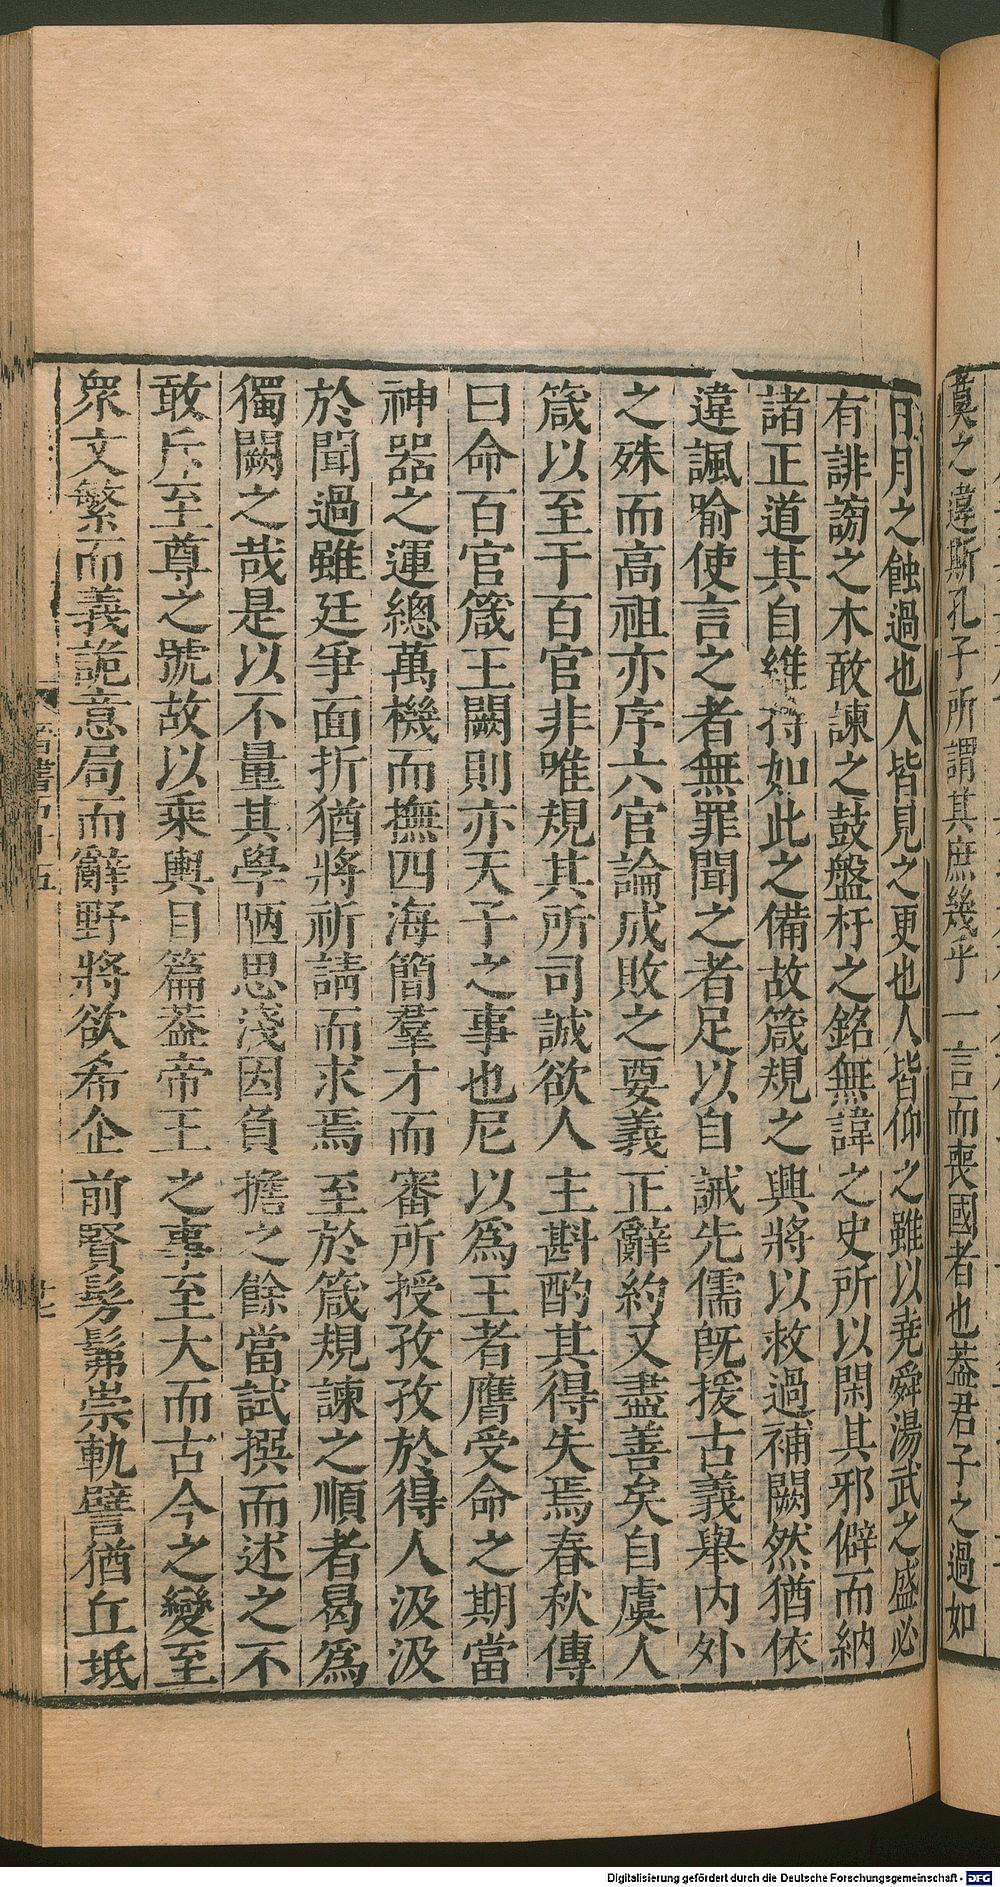 莫之違斯孔子所謂其庶幾乎一言而喪國者也蓋君子之過如
日月之蝕過也人皆見之更也人皆仰之雖以堯舜湯武之盛必
有誹謗之木敢諫之鼓盤杅之銘無諱之史所以閑其邪僻而納
諸正道其自維持如此之備故箴規之興將以救過補闕然猶依
違諷喻使言之者無罪聞之者足以自誡先儒旣援古義舉內外
之殊而高祖亦序六官論成敗之要義正辭約又盡善矣自虞人
箴以至于百官非唯規其所司誠欲人主斟酌其得失焉春秋傳
曰命百官箴王闕則亦天子之事也尼以爲王者膺受命之期當
神器之運總萬機而撫四海簡羣才而審所授孜孜於得人汲汲
於聞過雖廷爭面折猶將祈請而求焉至於箴規諫之順者曷爲
獨闕之哉是以不量其學陋思淺因負擔之餘當試撰而述之不
敢斥至尊之號故以乘輿目篇蓋帝王之事至大而古今之變至
衆文繁而義詭意局而辭野將欲希企前賢髣髴崇軌譬猶丘坻
晉書五十五
廿七
Digitalisierung gefördert durch die Deutsche Forschungsgemeinschaft - DFG